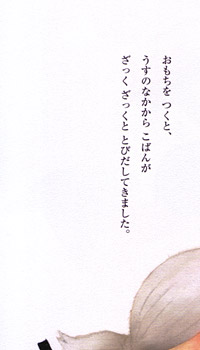 おもちを つくと、
うすのなかから こばんが
ざっく ざっくと とびだしてきました。